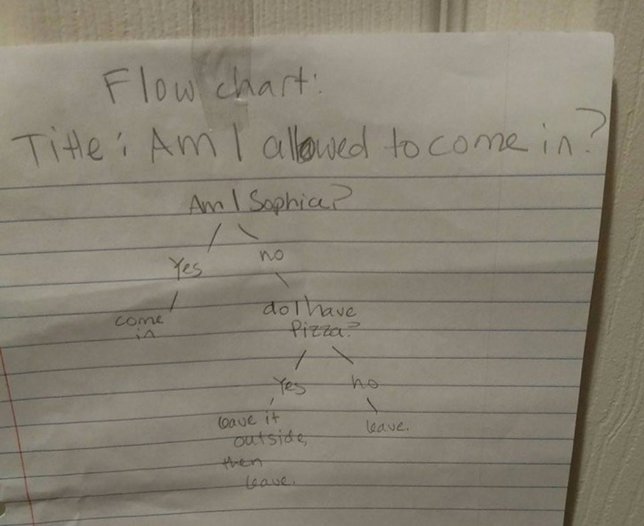 Flow chart:
Title: Am I allowed to come in?
Am I Sophia?
Yes no
come in
do I have
Pizza?
Yes no
leave it
outside,
then
leave.
leave.